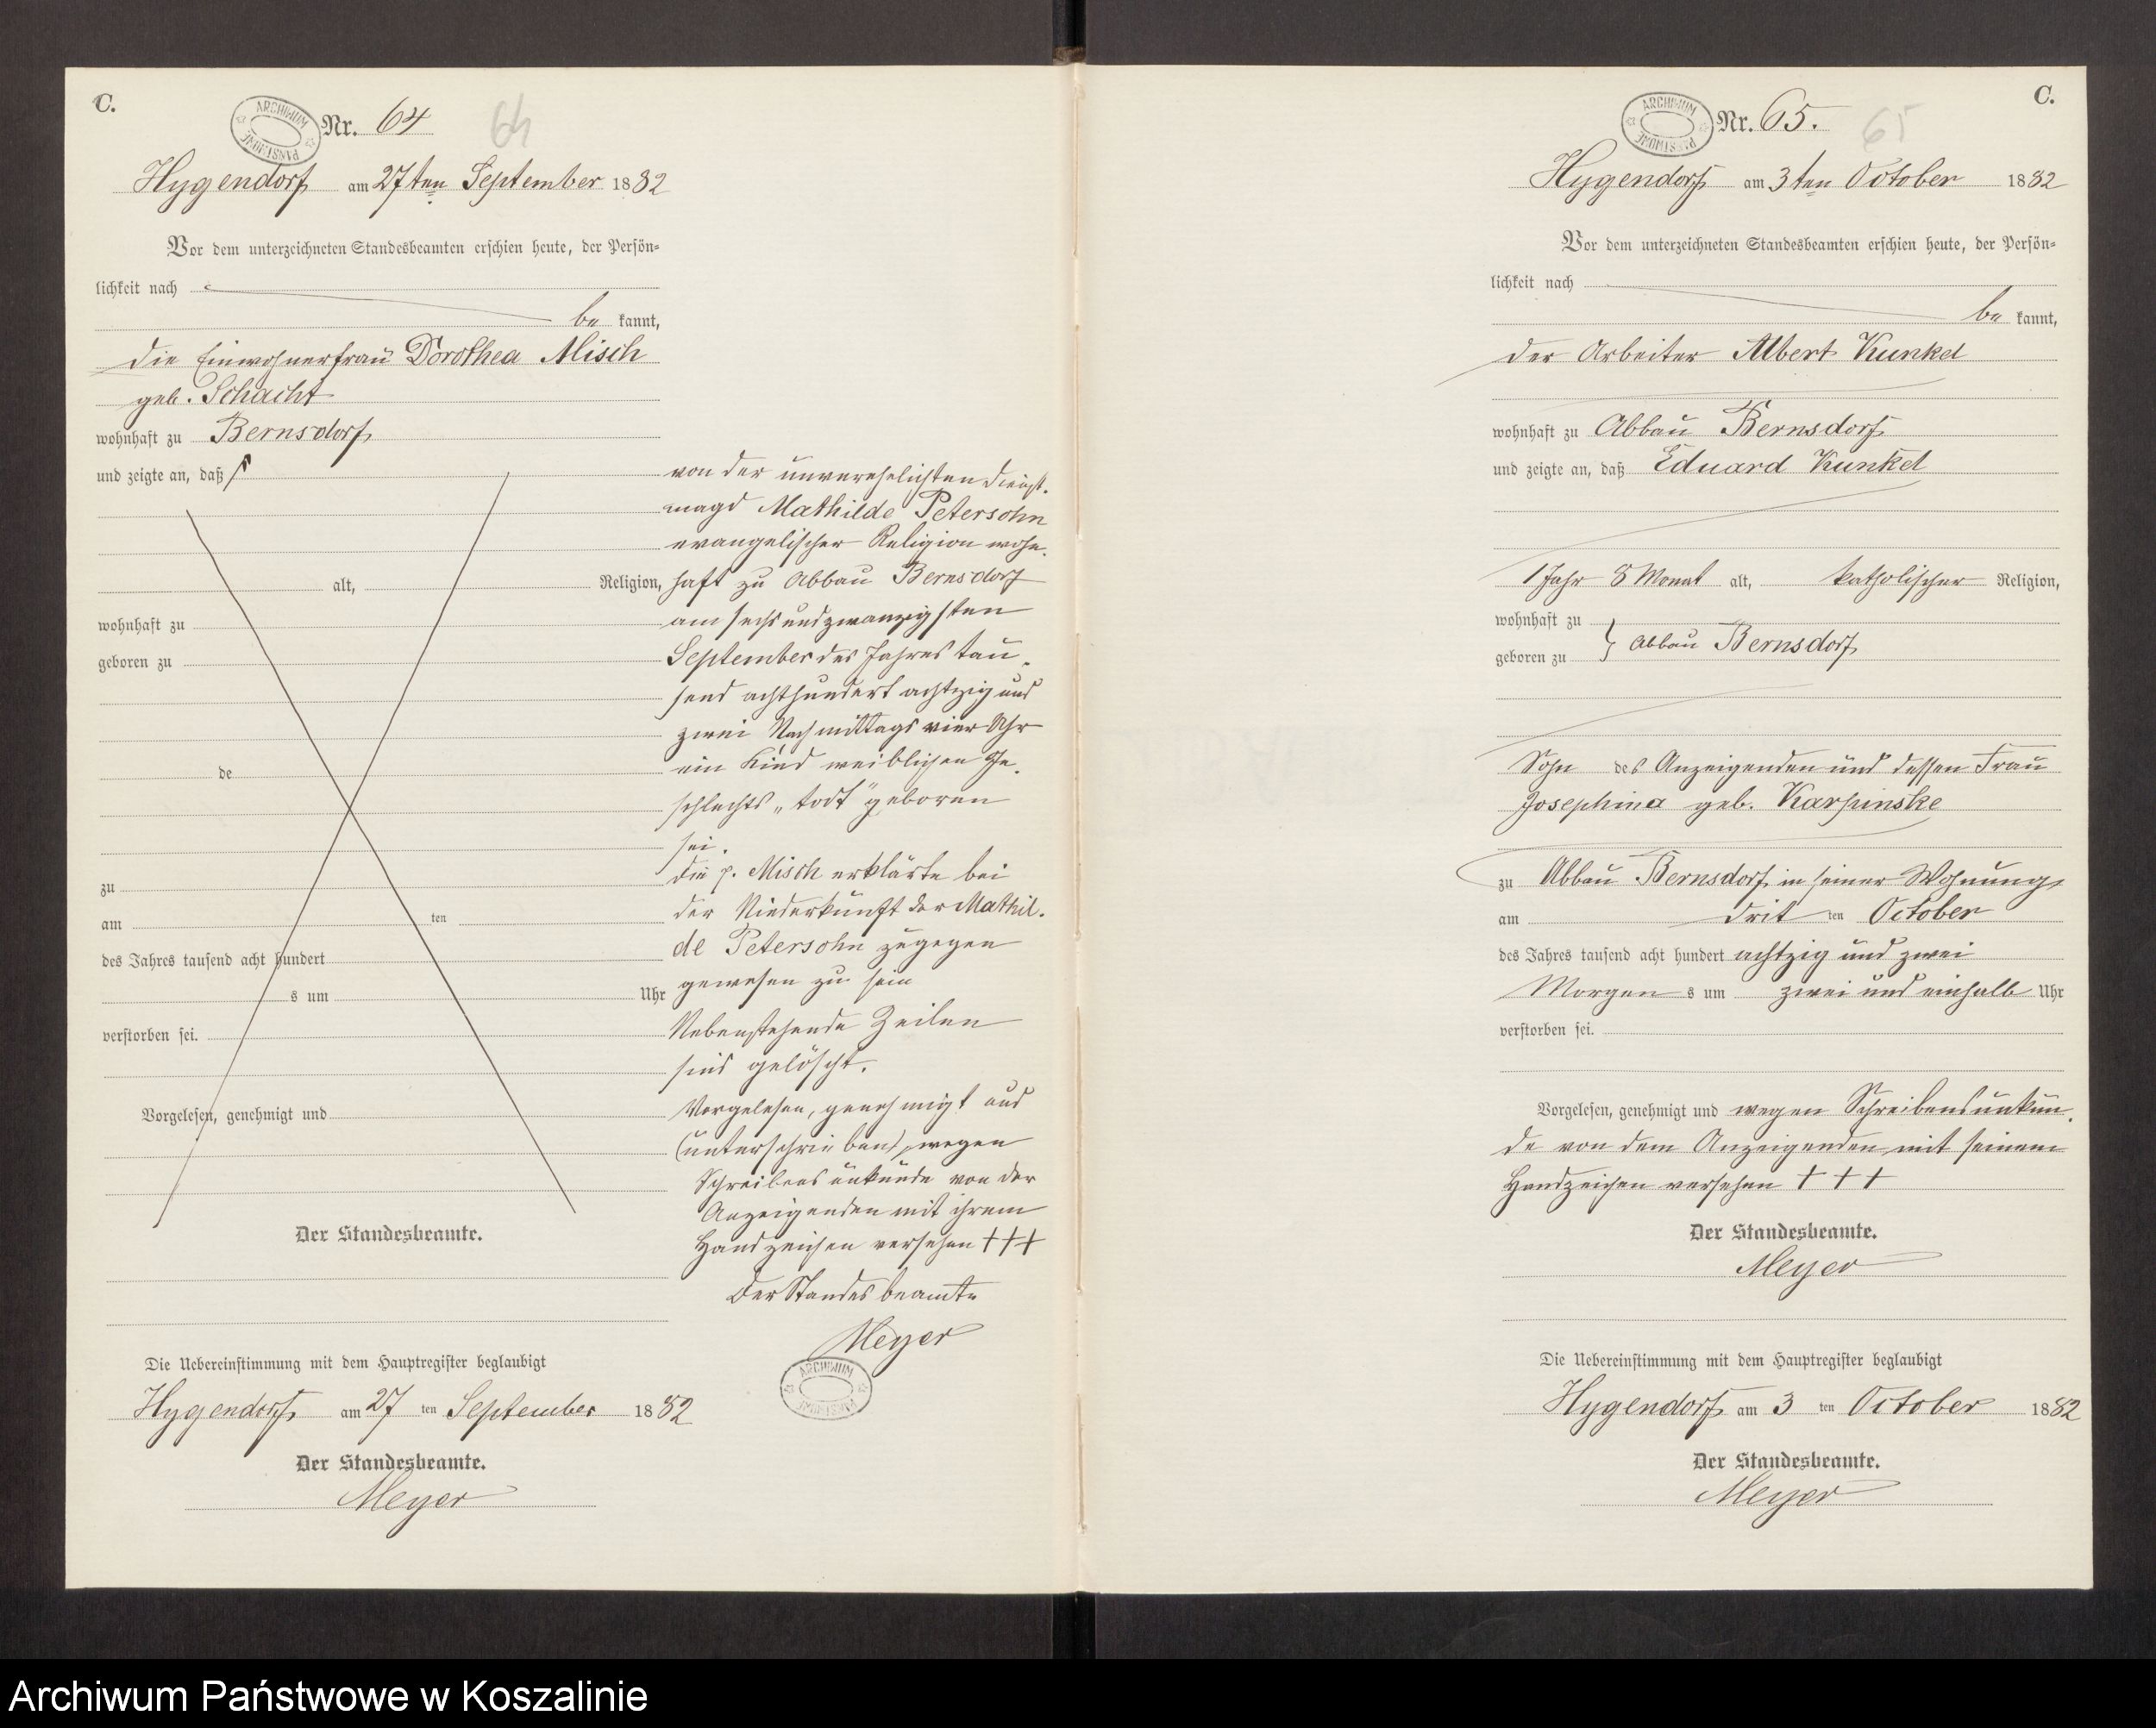 C.
ARCHIWUM PAŃSTWOWE
Nr. 64
64
Hygendorf am 27ten September 1882
Vor dem unterzeichneten Standesbeamten erschien heute, der Persön=
lichkeit nach
be kannt,
die Einwohnerfrau Dorothea Misch
geb. Schacht
wohnhaft zu Bernsdorf
und zeigte an, daß
von der unverehelichten Dienst-
magd Mathilde Petersohn
evangelischer Religion wohn-
alt, Religion, haft zu Abbau Bernsdorf
am sechsundzwanzigsten
wohnhaft zu
geboren zu
September des Jahres tau-
send achthundert achtzig und
zwei Nachmittags vier Uhr
ein Kind weiblichen Ge-
de
schlechts „todt" geboren
sei.
die p. Misch erklärte bei
zu
der Niederkunft der Mathil-
am ten
de Petersohn zugegen
des Jahres tausend acht hundert
gewesen zu sein
s um Uhr
Nebenstehende Zeilen
verstorben sei.
sind gelöscht.
Vorgelesen, genehmigt und
Vorgelesen, genehmigt und
(unterschrieben), wegen
Schreibensunkunde von der
Anzeigenden mit ihrem
Handzeichen versehen +++
Der Standesbeamte.
Der Standesbeamte
Meyer
ARCHIWUM PAŃSTWOWE
Die Uebereinstimmung mit dem Hauptregister beglaubigt
Hygendorf am 27 ten September 1882
Der Standesbeamte.
Meyer
C.
ARCHIWUM PAŃSTWOWE
Nr. 65.
65
Hygendorf am 3ten October 1882
Vor dem unterzeichneten Standesbeamten erschien heute, der Persön=
lichkeit nach
be kannt,
der Arbeiter Albert Kunkel
wohnhaft zu Abbau Bernsdorf
und zeigte an, daß Eduard Kunkel
1 Jahr 8 Monat alt, katholischer Religion,
wohnhaft zu
geboren zu } Abbau Bernsdorf
Sohn des Anzeigenden und dessen Frau
Josephina geb. Karpinske
zu Abbau Bernsdorf in seiner Wohnung
am drit ten October
des Jahres tausend acht hundert achtzig und zwei
Morgen s um zwei und einhalb Uhr
verstorben sei.
Vorgelesen, genehmigt und wegen Schreibensunkun-
de von dem Anzeigenden mit seinem
Handzeichen versehen + + +
Der Standesbeamte.
Meyer
Die Uebereinstimmung mit dem Hauptregister beglaubigt
Hygendorf am 3 ten October 1882
Der Standesbeamte.
Meyer
Archiwum Państwowe w Koszalinie